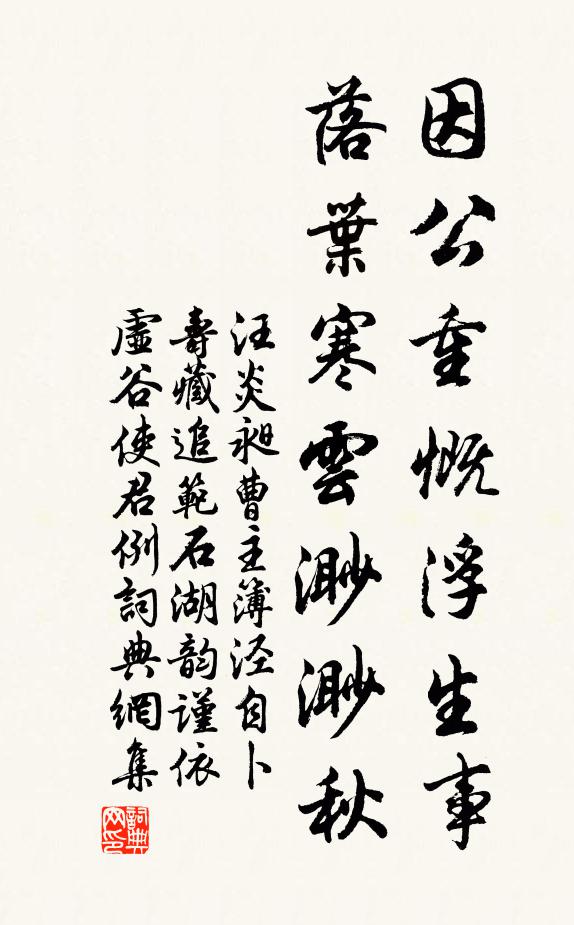 因公重慨浮生事
落葉寒雲渺渺秋
汪炎昶曹主簿涇自卜
壽藏追範石湖韵謹依
虛谷使君例詞典網集
詞典網印